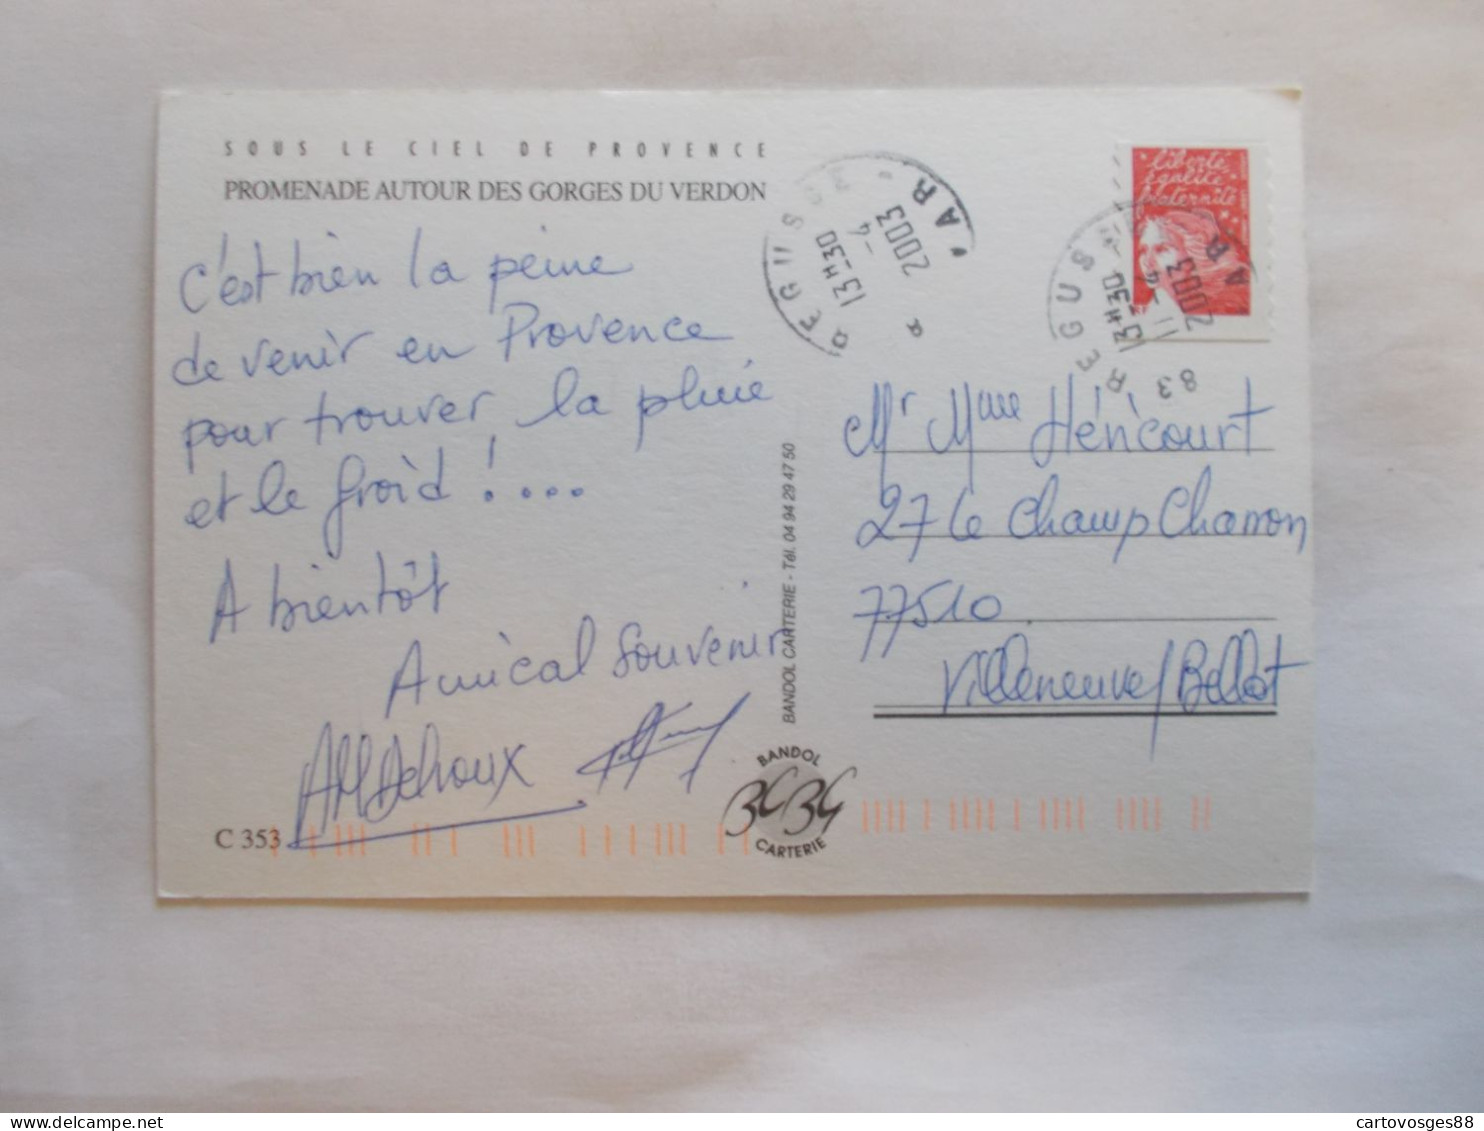 SOUS LE CIEL DE PROVENCE
PROMENADE AUTOUR DES GORGES DU VERDON
c'est bien la peine
de venir en Provence
pour trouver la pluie
et le froid !....
A bientôt
Amical souvenir
C 353
BANDOL CARTERIE - Tél. 04 94 29 47 50
BANDOL
CARTERIE
REGUSSE
13H30
-4
2003
VAR
liberté
égalité
fraternité
83 REGUSSE
13H30
11-4
2003
VAR
Mr Mme Héricourt
27 le Champ Charron
77510
Villeneuve/Bellot
cartovosges88